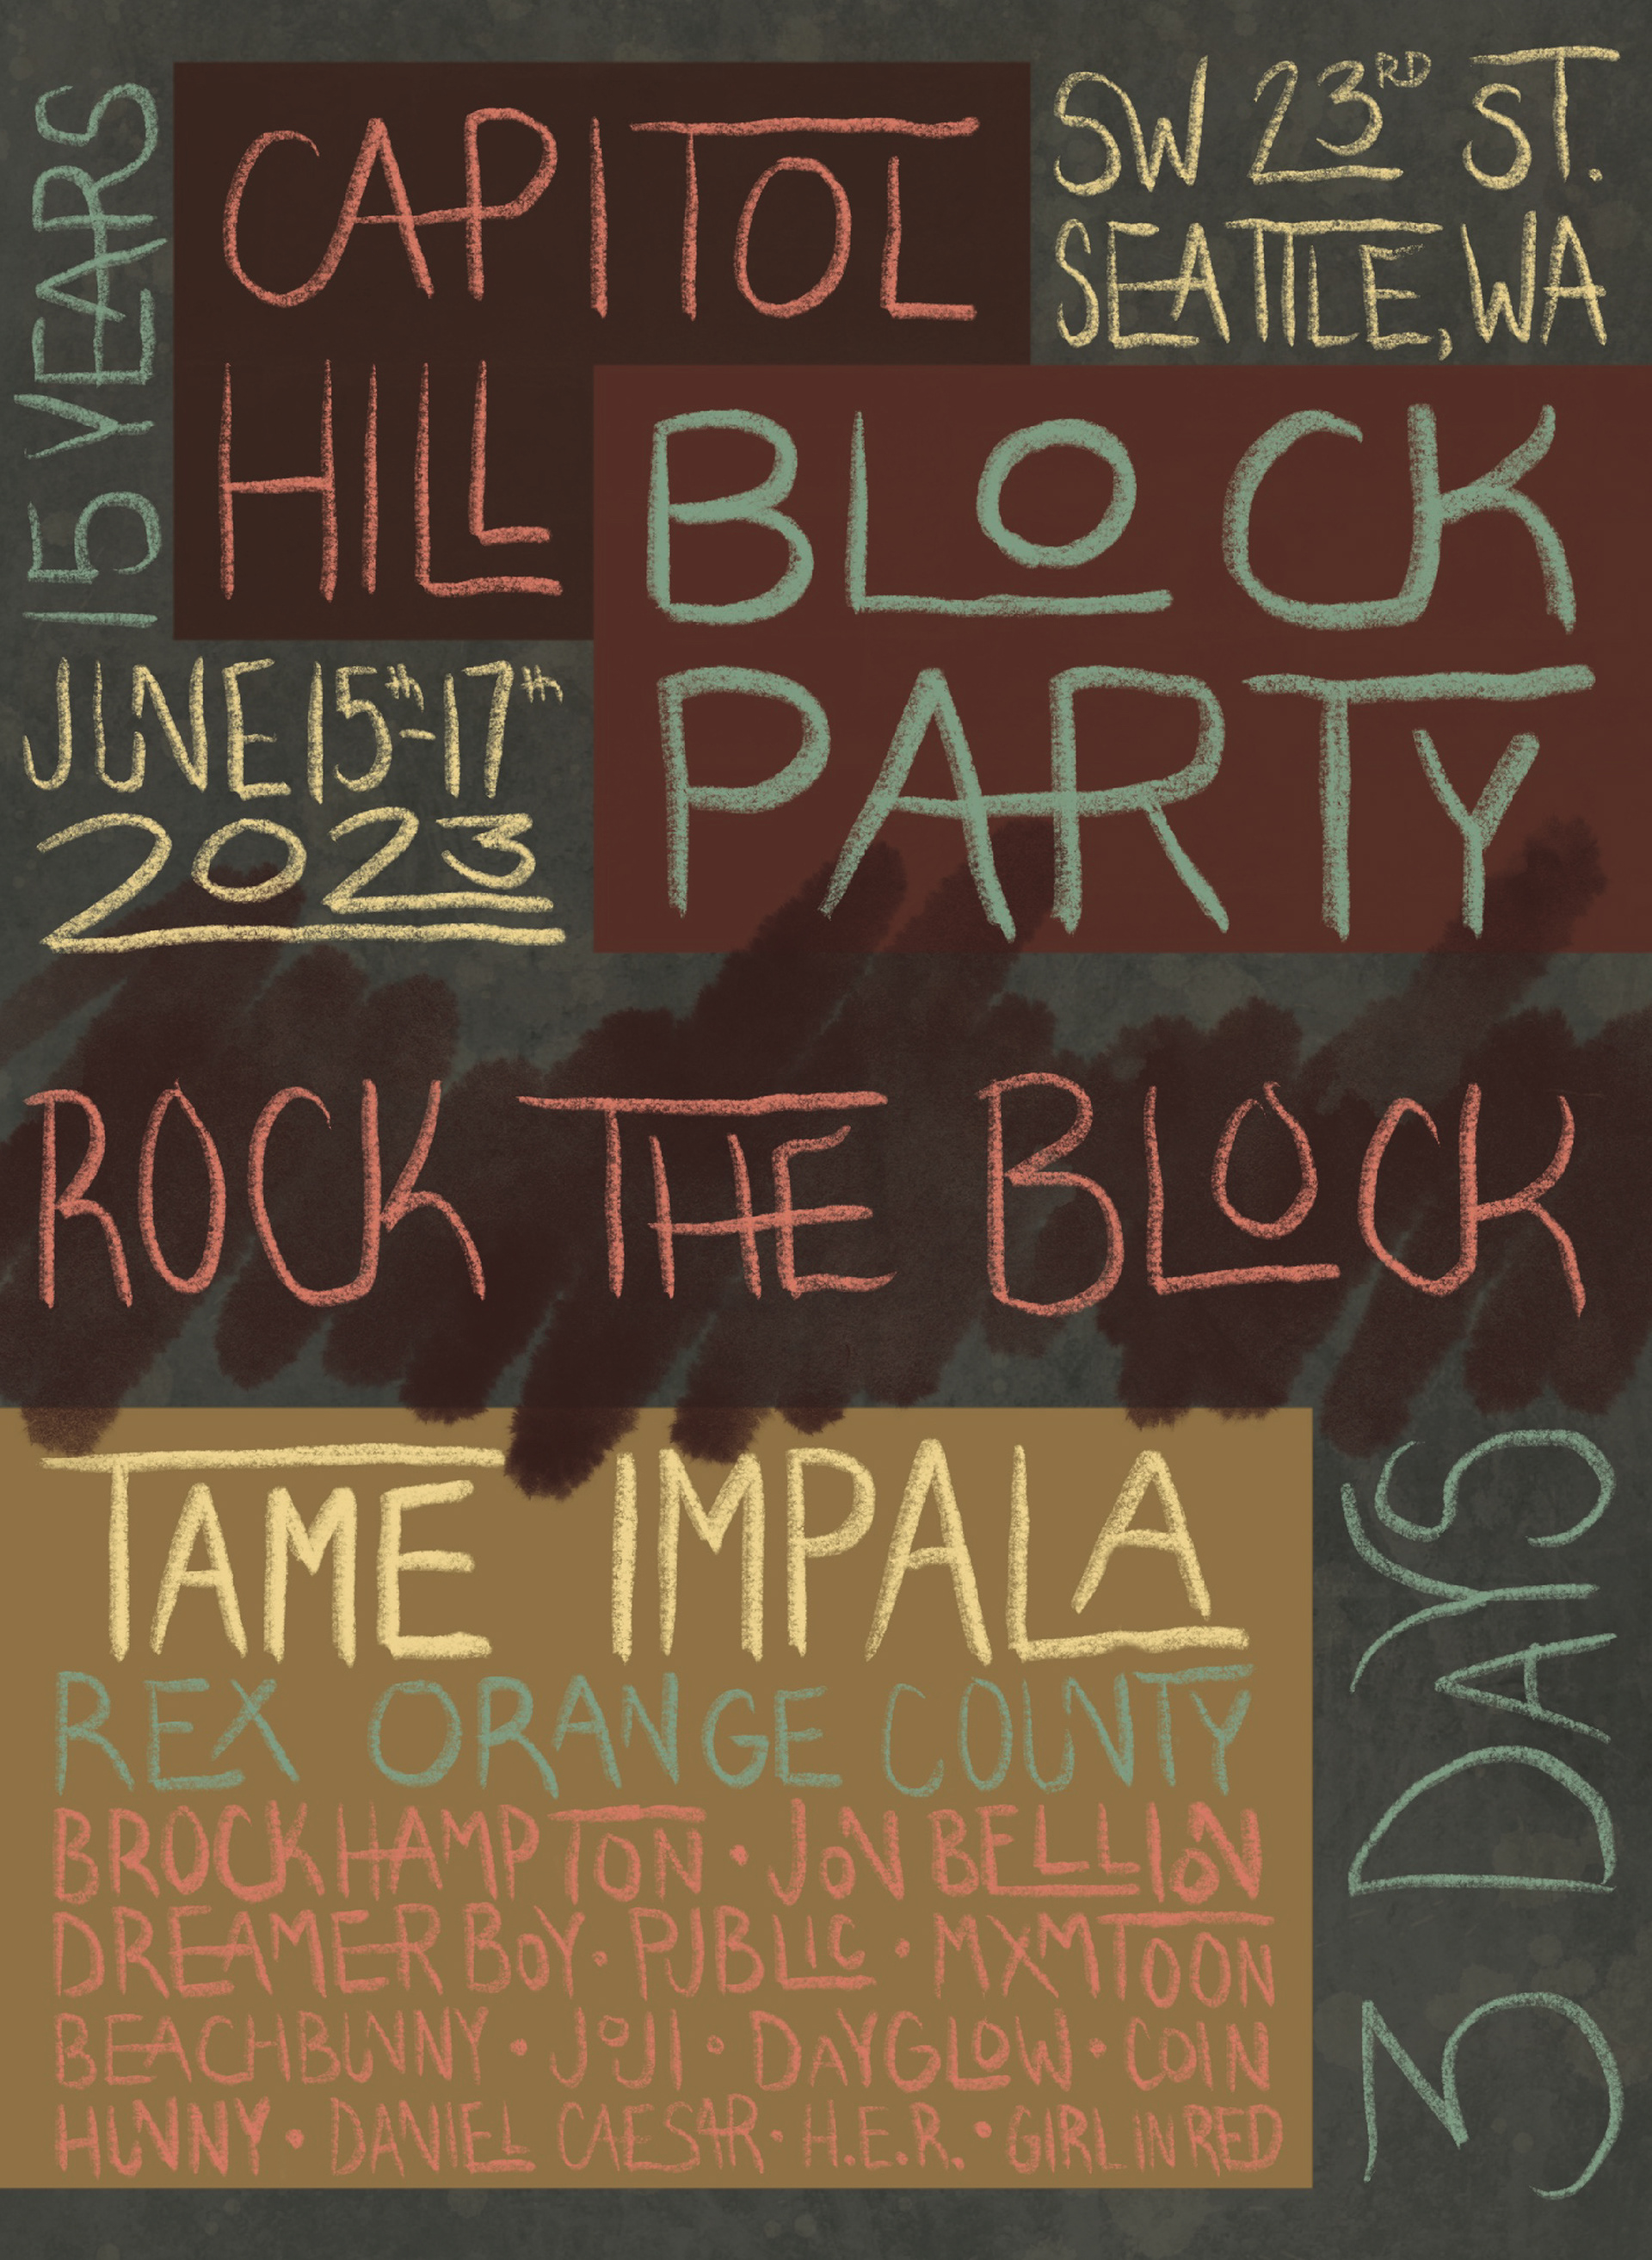 15 YEARS
CAPITOL
HILL
SW 23RD ST.
SEATTLE, WA
BLOCK
PARTY
JUNE 15th-17th
2023
ROCK THE BLOCK
TAME IMPALA
REX ORANGE COUNTY
BROCKHAMPTON • JON BELLLION
DREAMER BOY • PUBLIC • MXMTOON
BEACHBUNNY • JOJI • DAYGLOW • COIN
HUNNY • DANIEL CAESAR • H.E.R. • GIRL IN RED
3 DAYS